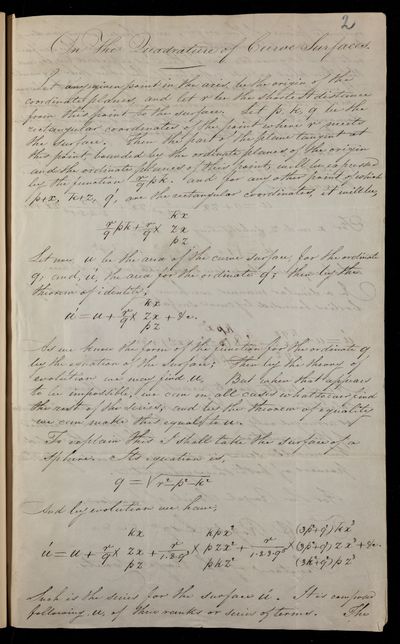 2
On The Quadrature of Curve Surfaces.
Let any given point in the axis, be the origin of the
coordinate planes, and let r be the shortest distance
from this point to the surface. Let p, k, q be the
rectangular coordinates of the point where r meets
the surface. Then the part of the plane tangent at
this point, bounded by the ordinate planes of the origin
and the ordinate planes of this point, will be expressed
by the function r/q pk. And for any other point of which
p+x, k+z, q, are the rectangular coordinates, it will be,
kx
r/q pk + r/q × zx
pz
Let now, u be the area of the curve surface, for the ordinate
q; and, ú, the area for the ordinate q'; then by the
theorem of identity,
kx
ú = u + r/q × zx + &c.
pz
As we know the form of the function for the ordinate q
by the equation of the surface; then by the theory of
evolution we may find u. But when that appears
to be impossible, we can in all cases whatsoever, find
the rest of the series; and by the theorem of equality
we can make this equal to u.
To explain this I shall take the surface of a
sphere. Its equation is,
q = √r²-p²-k²
And by evolution we have,
kx kpx² (3p²+q²)kx³
ú = u + r/q × zx + r/1·2·q³ × pzx² + r/1·2·3·q⁵ × (3p²+q²)zx³ + &c.
pz pkz² (3k²+q²)pz³
Such is the series for the surface ú. It is composed
following u, of three ranks or series of terms. The